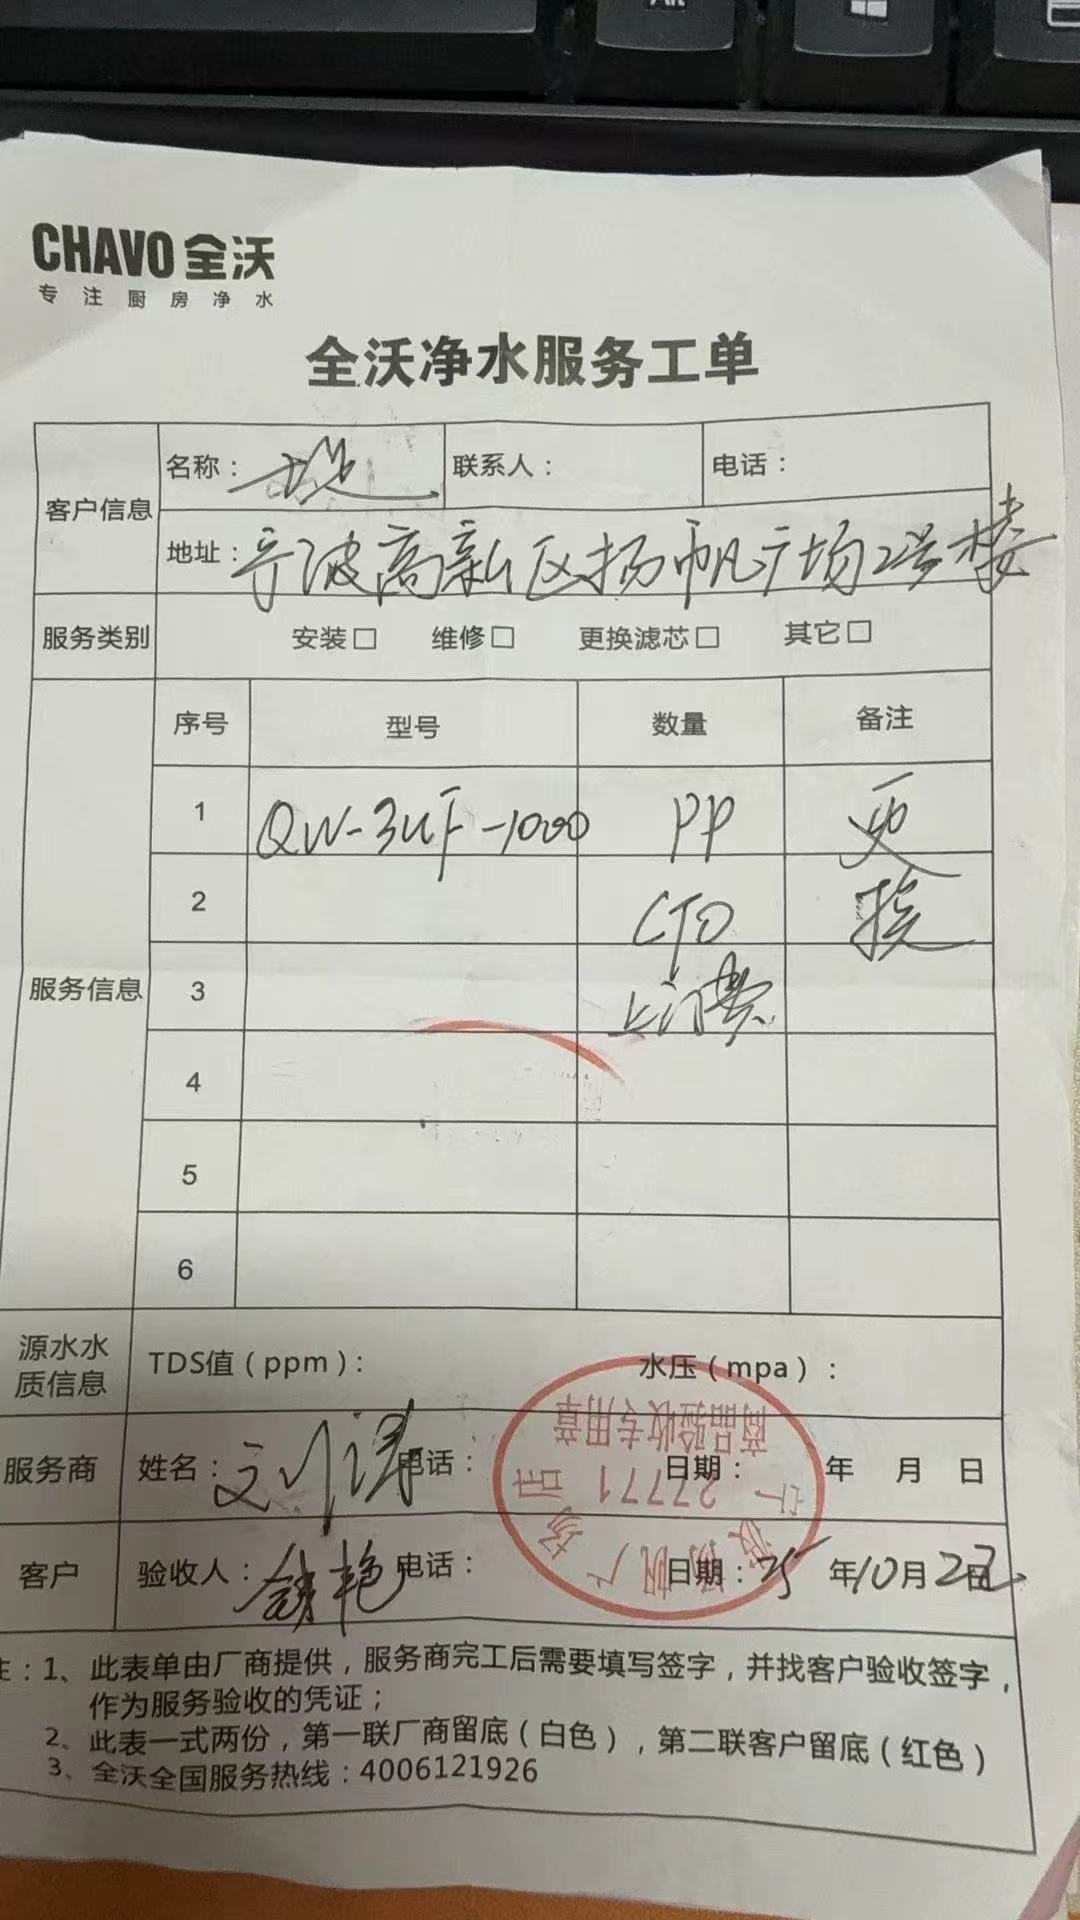 Alt
CHAVO 全沃
专注厨房净水
全沃净水服务工单
客户信息 名称： 联系人： 电话：
地址：宁波高新区扬帆广场2号楼
服务类别 安装□ 维修□ 更换滤芯□ 其它□
服务信息 序号 型号 数量 备注
1 QW-3UF-1000 PP 更
2 CTO 换
3 上门费
4
5
6
源水水质信息 TDS值（ppm）： 水压（mpa）：
服务商 姓名：刘涛 电话： 日期： 年 月 日
客户 验收人： 艳 电话： 日期：25年10月2 日
商品验收专用章
27771
注：1、此表单由厂商提供，服务商完工后需要填写签字，并找客户验收签字，
作为服务验收的凭证；
2、此表一式两份，第一联厂商留底（白色），第二联客户留底（红色）
3、全沃全国服务热线：4006121926